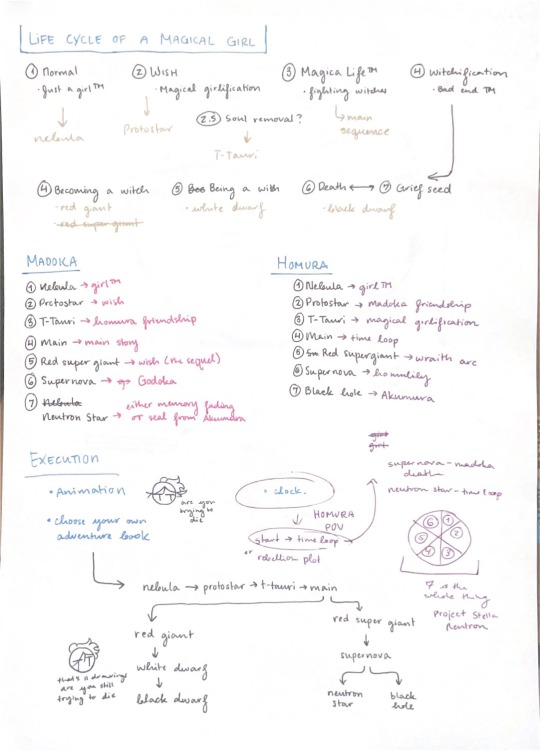 LIFE CYCLE OF A MAGICAL GIRL
① Normal
· Just a girl™
nebula
② Wish
· Magical girlification
Protostar
②.5 Soul removal?
T-Tauri
③ Magica Life™
· fighting witches
main
sequence
④ Witchification
· Bad end™
④ Becoming a witch
· red giant
· red super giant
⑤ Being a with
· white dwarf
⑥ Death ↔ ⑦ Grief seed
· black dwarf
MADOKA
① Nebula → girl™
② Protostar → wish
③ T-Tauri → homura friendship
④ Main → main story
⑤ Red super giant → wish (the sequel)
⑥ Supernova → Godoka
⑦ Nebula
Neutron Star → either memory fading
or seal from Akumura
HOMURA
① Nebula → girl™
② Protostar → madoka friendship
③ T-Tauri → magical girlification
④ Main → time loop
⑤ Red Supergiant → wraith arc
⑥ Supernova → homulily
⑦ Black hole → Akumura
EXECUTION
• Animation
• choose your own
adventure book
are you
trying to
die
• clock.
HOMURA
POV
start → time loop →
or rebellion plot
supernova - madoka
death
neutron star - time loop
① ② ③ ④ ⑤ ⑥
7 is the
whole thing
Project Stella
Neutron
nebula → protostar → t-tauri → main
red giant
white dwarf
black dwarf
red super giant
supernova
neutron
star
black
hole
that's 2 drawings
are you still
trying to die